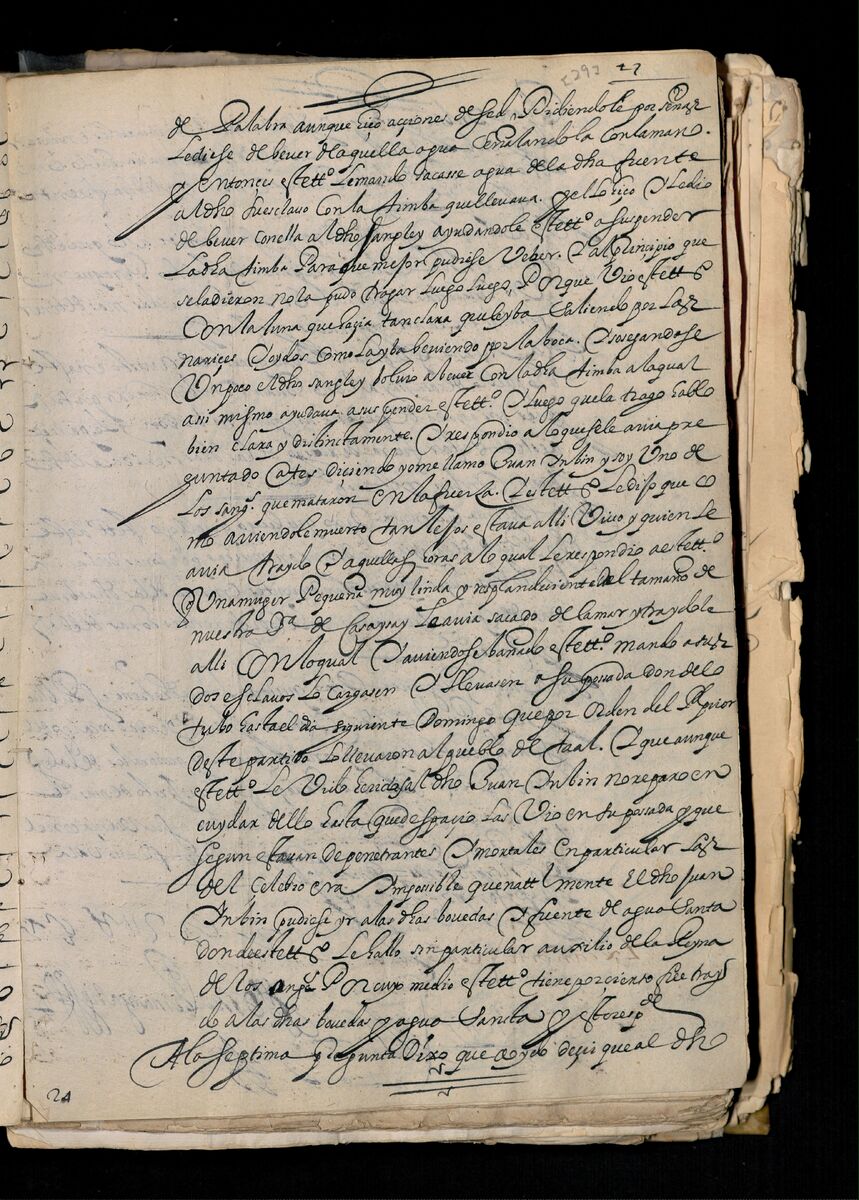 [29] 27
de Palabra aunque hiço acçiones de sed, Pidiendole por señaz
Lediese de bever de aquella agua Señalandola Conlamano.
y entonces este ttº. Lemando sacasse agua dela dha fuente
al dho su esclavo Conla timba quellevava. y el lo hico y Ledio
de bever Conella al dho sangley ayudandole este ttº a suspender
Ladha timba Paraque mejor pudiese Veber. Y al Principio que
seladieron no la pudo tragar Luego Luego, Porque Vio este ttº
Con la luna que hazia tan clara que leyba Saliendo por Laz
nariçes Y oydos Como Layba beviendo por la boca. Y sosegandose
Un poco el dho sangley bolvio abever Con ladha timba a la qual
asi mismo ayudava a suspender este ttº. Y luego quela trago hablo
bien clara y distinctamente. Y respondio a lo quesele avia pre
guntado Antes diciendo yo me llamo Juan Inbin y soy Uno de
Los sangs. que mataron en la fuerza. Y este ttº Ledijo que Co
mo aviendole muerto tan lejos estava alli Vivo y quien Le
avia traydo Y aquellas horas a lo qual Le respondio a este ttº.
q Una muger Pequeña muy linda y resplandeciente del tamaño de
nuestra Sª de Casaysay Leavia sacado de la mar y traydole
alli Con lo qual Y aviendose bañado este ttº. mando a suz
dos esclavos Lo Cargasen Y llevasen a su posada donde lo
tubo hasta el dia siguiente Domingo que por orden del Pe prior
deste partido Lo llevaron al pueblo de taal. Y que aunque
este ttº Le Vido heridas al dho Juan Inbin no reparo en
cuydar dello hasta que de espaçio Las Vio en su posada y que
segun estavan de penetrantes Y mortales en particular Laz
del Celebro era Imposible que nattlmente El dho Juan
Inbin pudiese yr a las dhas bovedas Y fuente de agua Santa
donde este ttº Le hallo sin particular auxilio de la Reyna
de los angs Por cuyo medio este ttº tiene por cierto fue tray
do a las dhas bovedas y agua Santa y esto respde
A la septima Pregunta Dixo que a oydo deçir que al dho
24